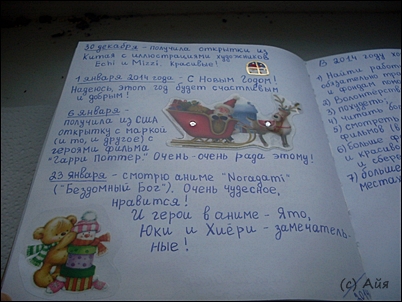 30 декабря - получила открытки из
Китая с иллюстрациями художников
Echi и Mizzi. Красивые!
1 января 2014 года - С Новым Годом!
Надеюсь, этот год будет счастливым
и добрым!
6 января -
получила из США
открытку с маркой
(и то, и другое) с
героями фильма
"Гарри Поттер." Очень-очень рада этому!
23 января - смотрю аниме "Noragami"
("Бездомный Бог"). Очень чудесное,
нравится!
И герои в аниме - Ято,
Юки и Хиёри - замечатель-
ные!
В 2014 году хо
1) Найти работ
обязательно
2)
3) похудеть
4) читать
5)
фильмов
6) Больше
и красив
и сбере
7) больше
местах
(c) Айя